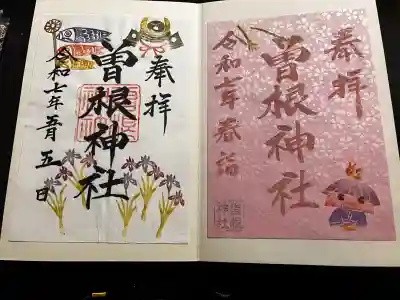 奉拝
曽根神社
令和七年五月五日
奉拝
曽根神社
令和七年春詣